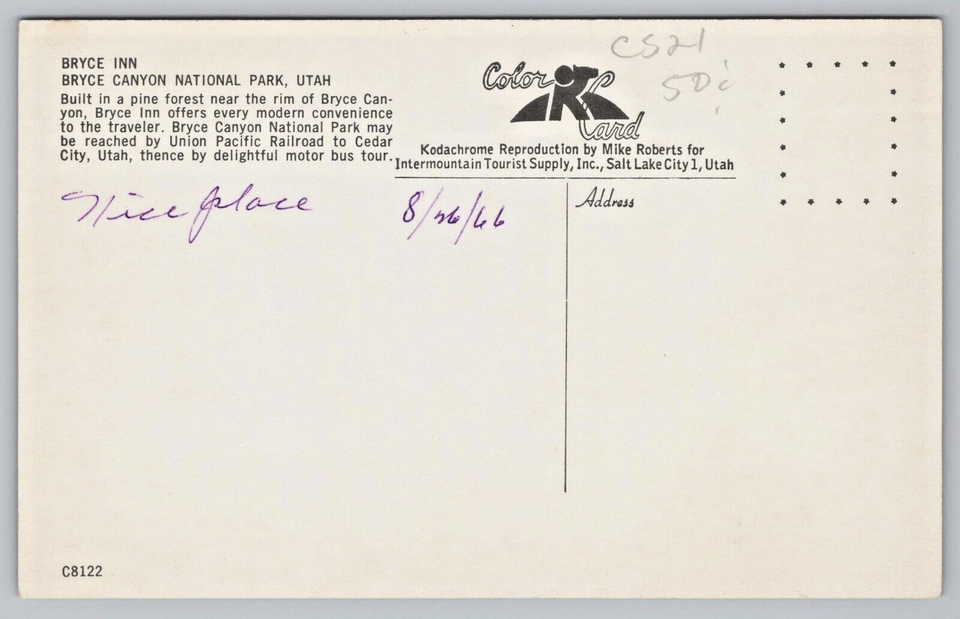 BRYCE INN
BRYCE CANYON NATIONAL PARK, UTAH
Built in a pine forest near the rim of Bryce Can-
yon, Bryce Inn offers every modern convenience
to the traveler. Bryce Canyon National Park may
be reached by Union Pacific Railroad to Cedar
City, Utah, thence by delightful motor bus tour.
Nice place 8/26/66
CS21
50¢
Color Card
Kodachrome Reproduction by Mike Roberts for
Intermountain Tourist Supply, Inc., Salt Lake City 1, Utah
Address
C8122